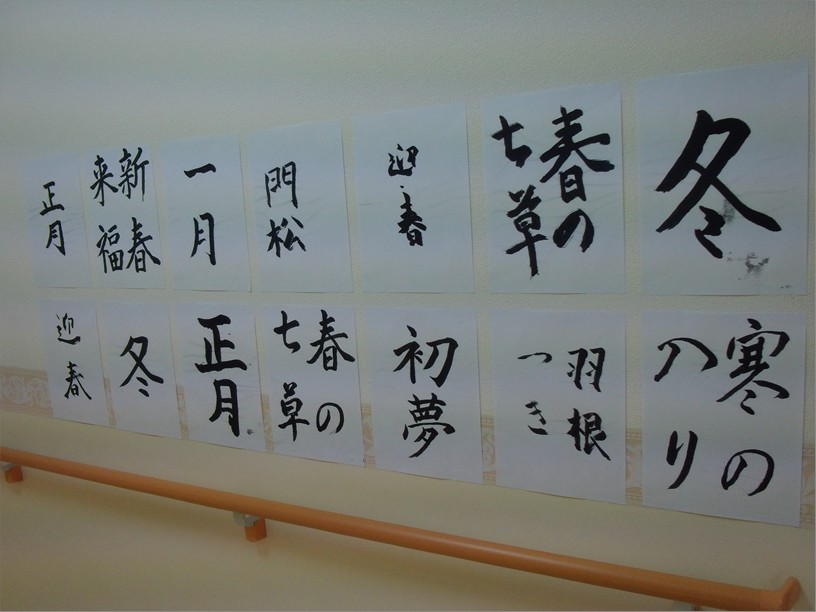 冬
春の
七草
迎春
門松
一月
新春
来福
正月
寒の
入り
羽根
つき
初夢
春の
七草
正月
冬
迎春